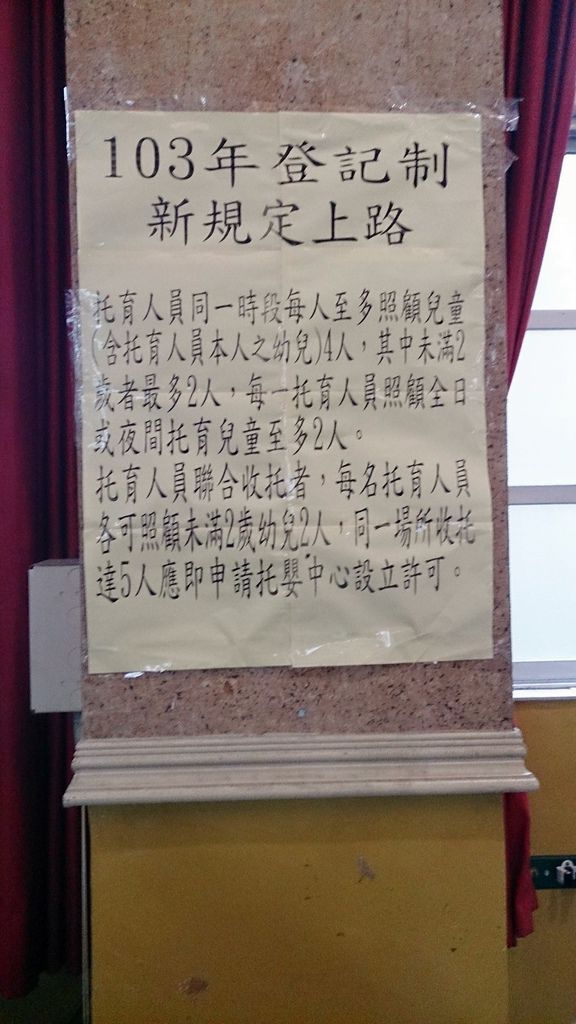 103年登記制
新規定上路
托育人員同一時段每人至多照顧兒童
(含托育人員本人之幼兒)4人，其中未滿2
歲者最多2人，每一托育人員照顧全日
或夜間托育兒童至多2人。
托育人員聯合收托者，每名托育人員
各可照顧未滿2歲幼兒2人，同一場所收托
達5人應即申請托嬰中心設立許可。